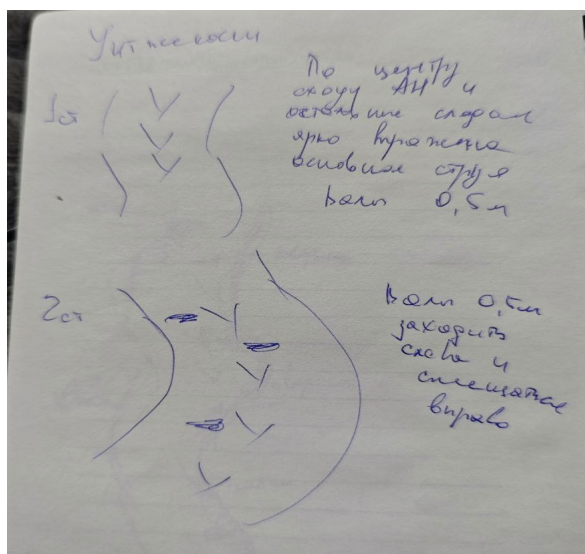 1ст
По центру
сходу АН и
остальные следом
ярко выражена
основная струя
Валы 0,5м
2ст
Валы 0,5м
заходить
слева и
смещаться
вправо